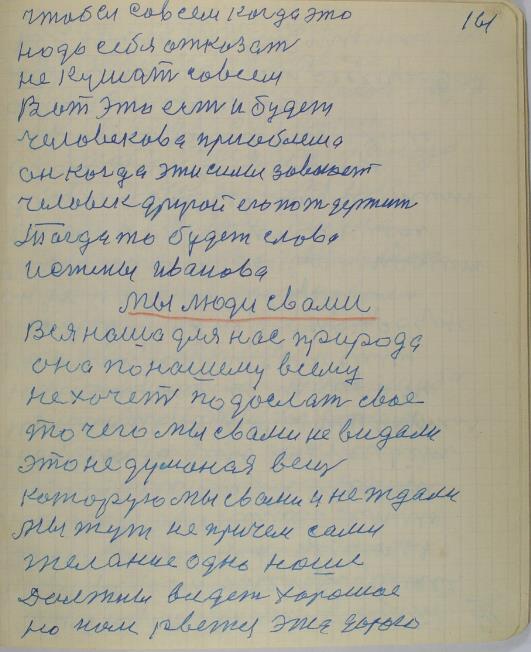 чтобы совсем когда это
161
надо себя отказат
не кушат совсем
Вот это ест и будет
человекова приоблема
он когда эти силы завоюет
человек дрирой его пот держит
Тогда то будет слова
истены иванова
Мы люди свами
Вся наша для нас природа
она по нашему всему
не хочет подослат свое
то чего мы свами не видали
это не думаная вещ
которую мы свами и не ждали
мы тут не причем сами
желание одно наше
Должны видет хорошое
но нам рветцы эта